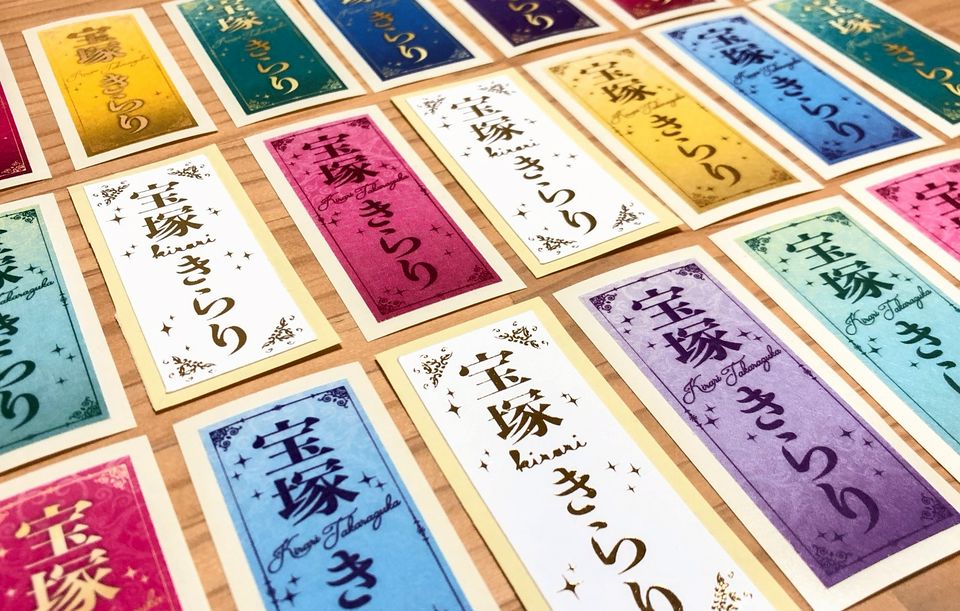 宝塚きらり
Kirari Takarazuka
きらり
きらり
宝塚きらり
kirari
宝塚きらり
Kirari Takarazuka
宝塚きらり
kirari
宝塚きらり
Kirari Takarazuka
宝塚きらり
Kirari Takarazuka
宝塚きらり
Kirari Takarazuka
きらり
宝塚
宝塚き
Kirari Takarazuka
宝塚きらり
kirari
宝塚きらり
Kirari Takarazuka
宝塚き
Kirari Takarazuka
宝